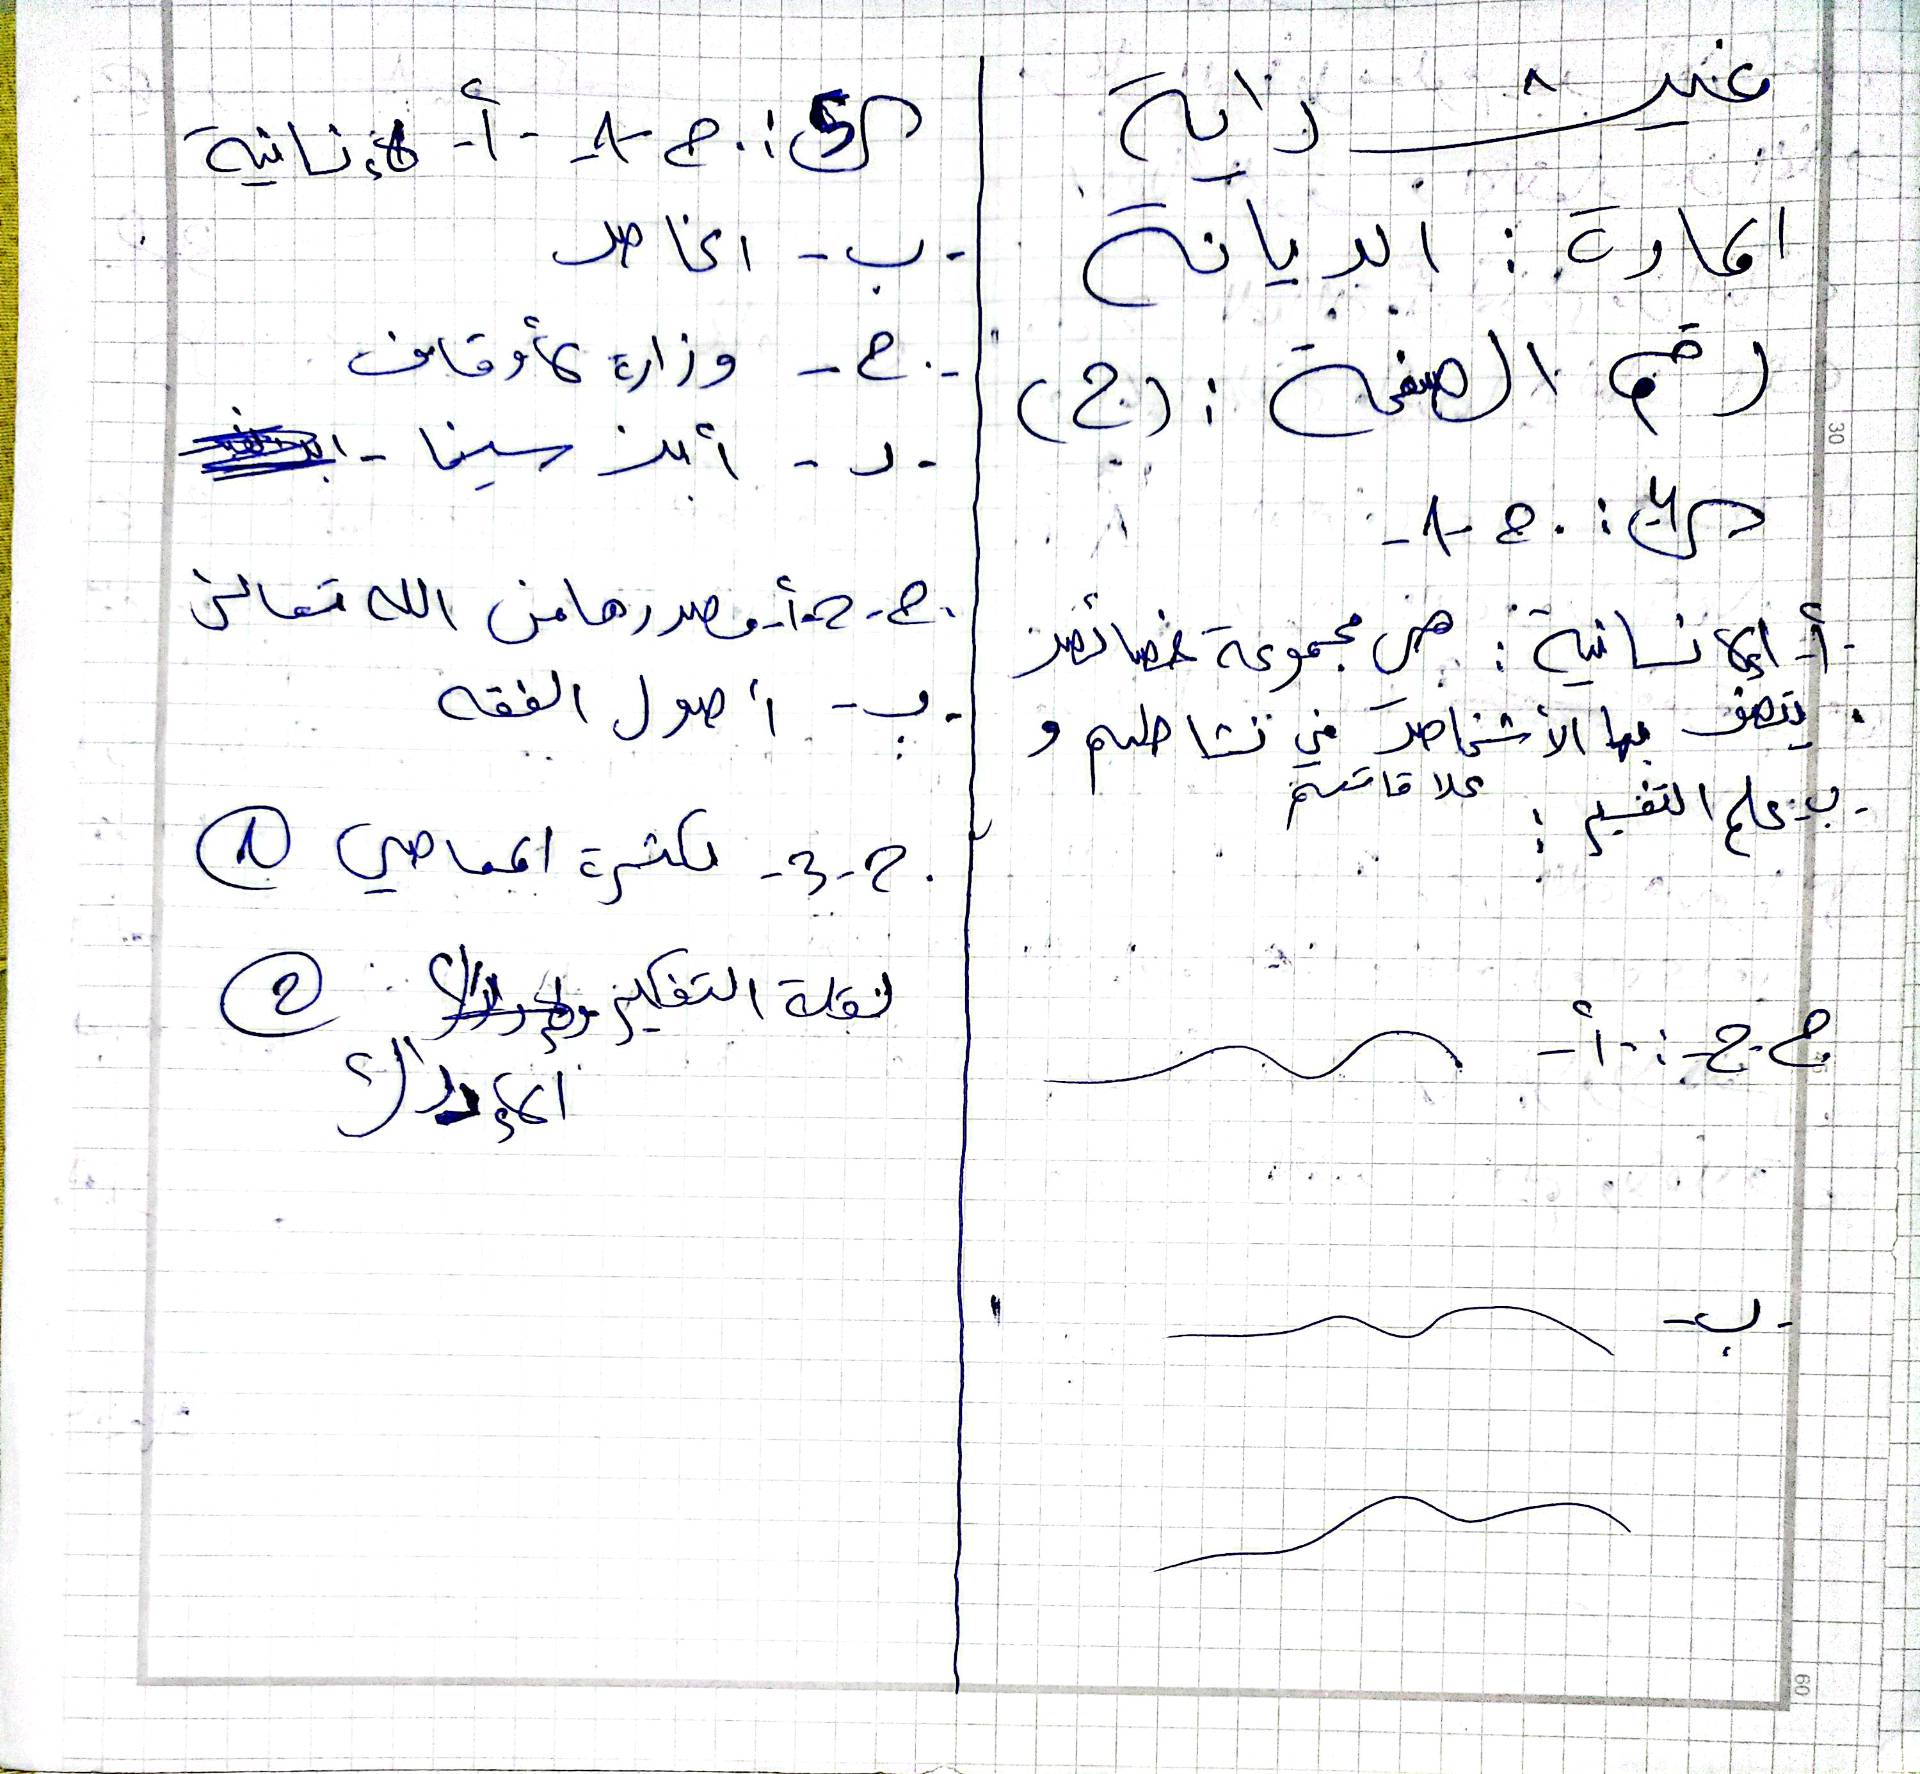 المادة : الديانة
رقم الصفحة : (2)
س4: ج -1-
-أ- الإنسانية : هي مجموعة خصائص
يتصف بها الأشخاص في نشاطهم و
علاقاتهم
-ب- علم التفسير :
ج-2- : -أ-
-ب-
س5: ج -1- -أ- الإنسانية
-ب- الخاص
-ج- وزارة الأوقاف
-د- أبن سينا -
ج-2-أ- مصدرها من الله تعالى
-ب- أصول الفقه
ج-3- لكثرة المعاصي 1
لقلة التفكير 2
الإدراك
30
60